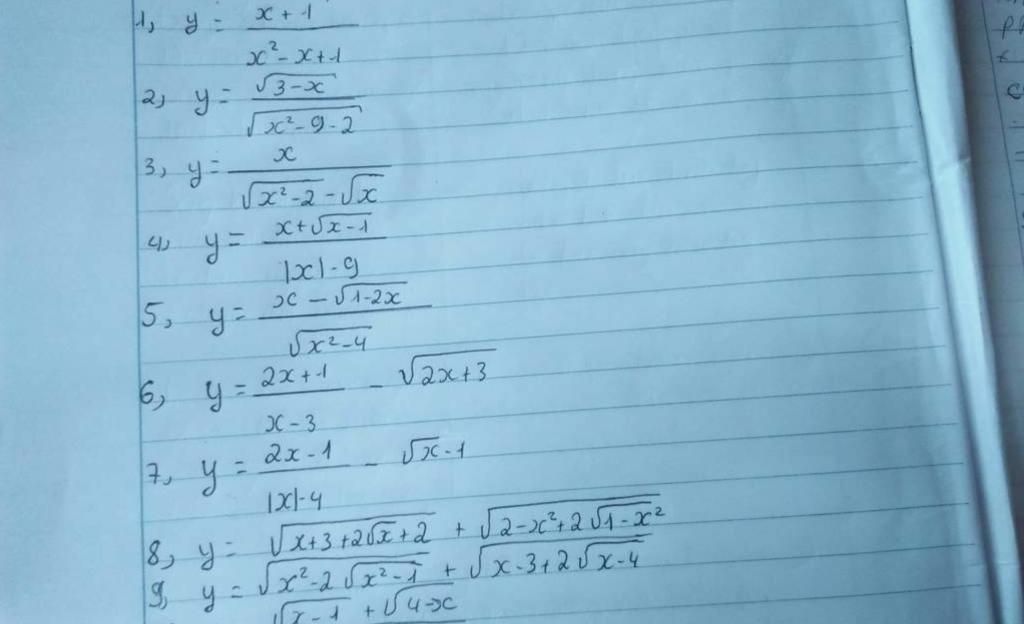 1, y = (x + 1)/(x² - x + 1)
2, y = √(3 - x)/√(x² - 9 - 2)
3, y = x/(√(x² - 2) - √x)
4, y = (x + √(x - 1))/(|x| - 9)
5, y = (x - √(1 - 2x))/√(x² - 4)
6, y = (2x + 1)/(x - 3) - √(2x + 3)
7, y = (2x - 1)/(|x| - 4) - √x - 1
8, y = √(x + 3 + 2√x + 2) + √(2 - x² + 2√(1 - x²))
9, y = √(x² - 2√(x² - 1)) + √(x - 3 + 2√(x - 4))
√(x - 1) + √(4 - x)